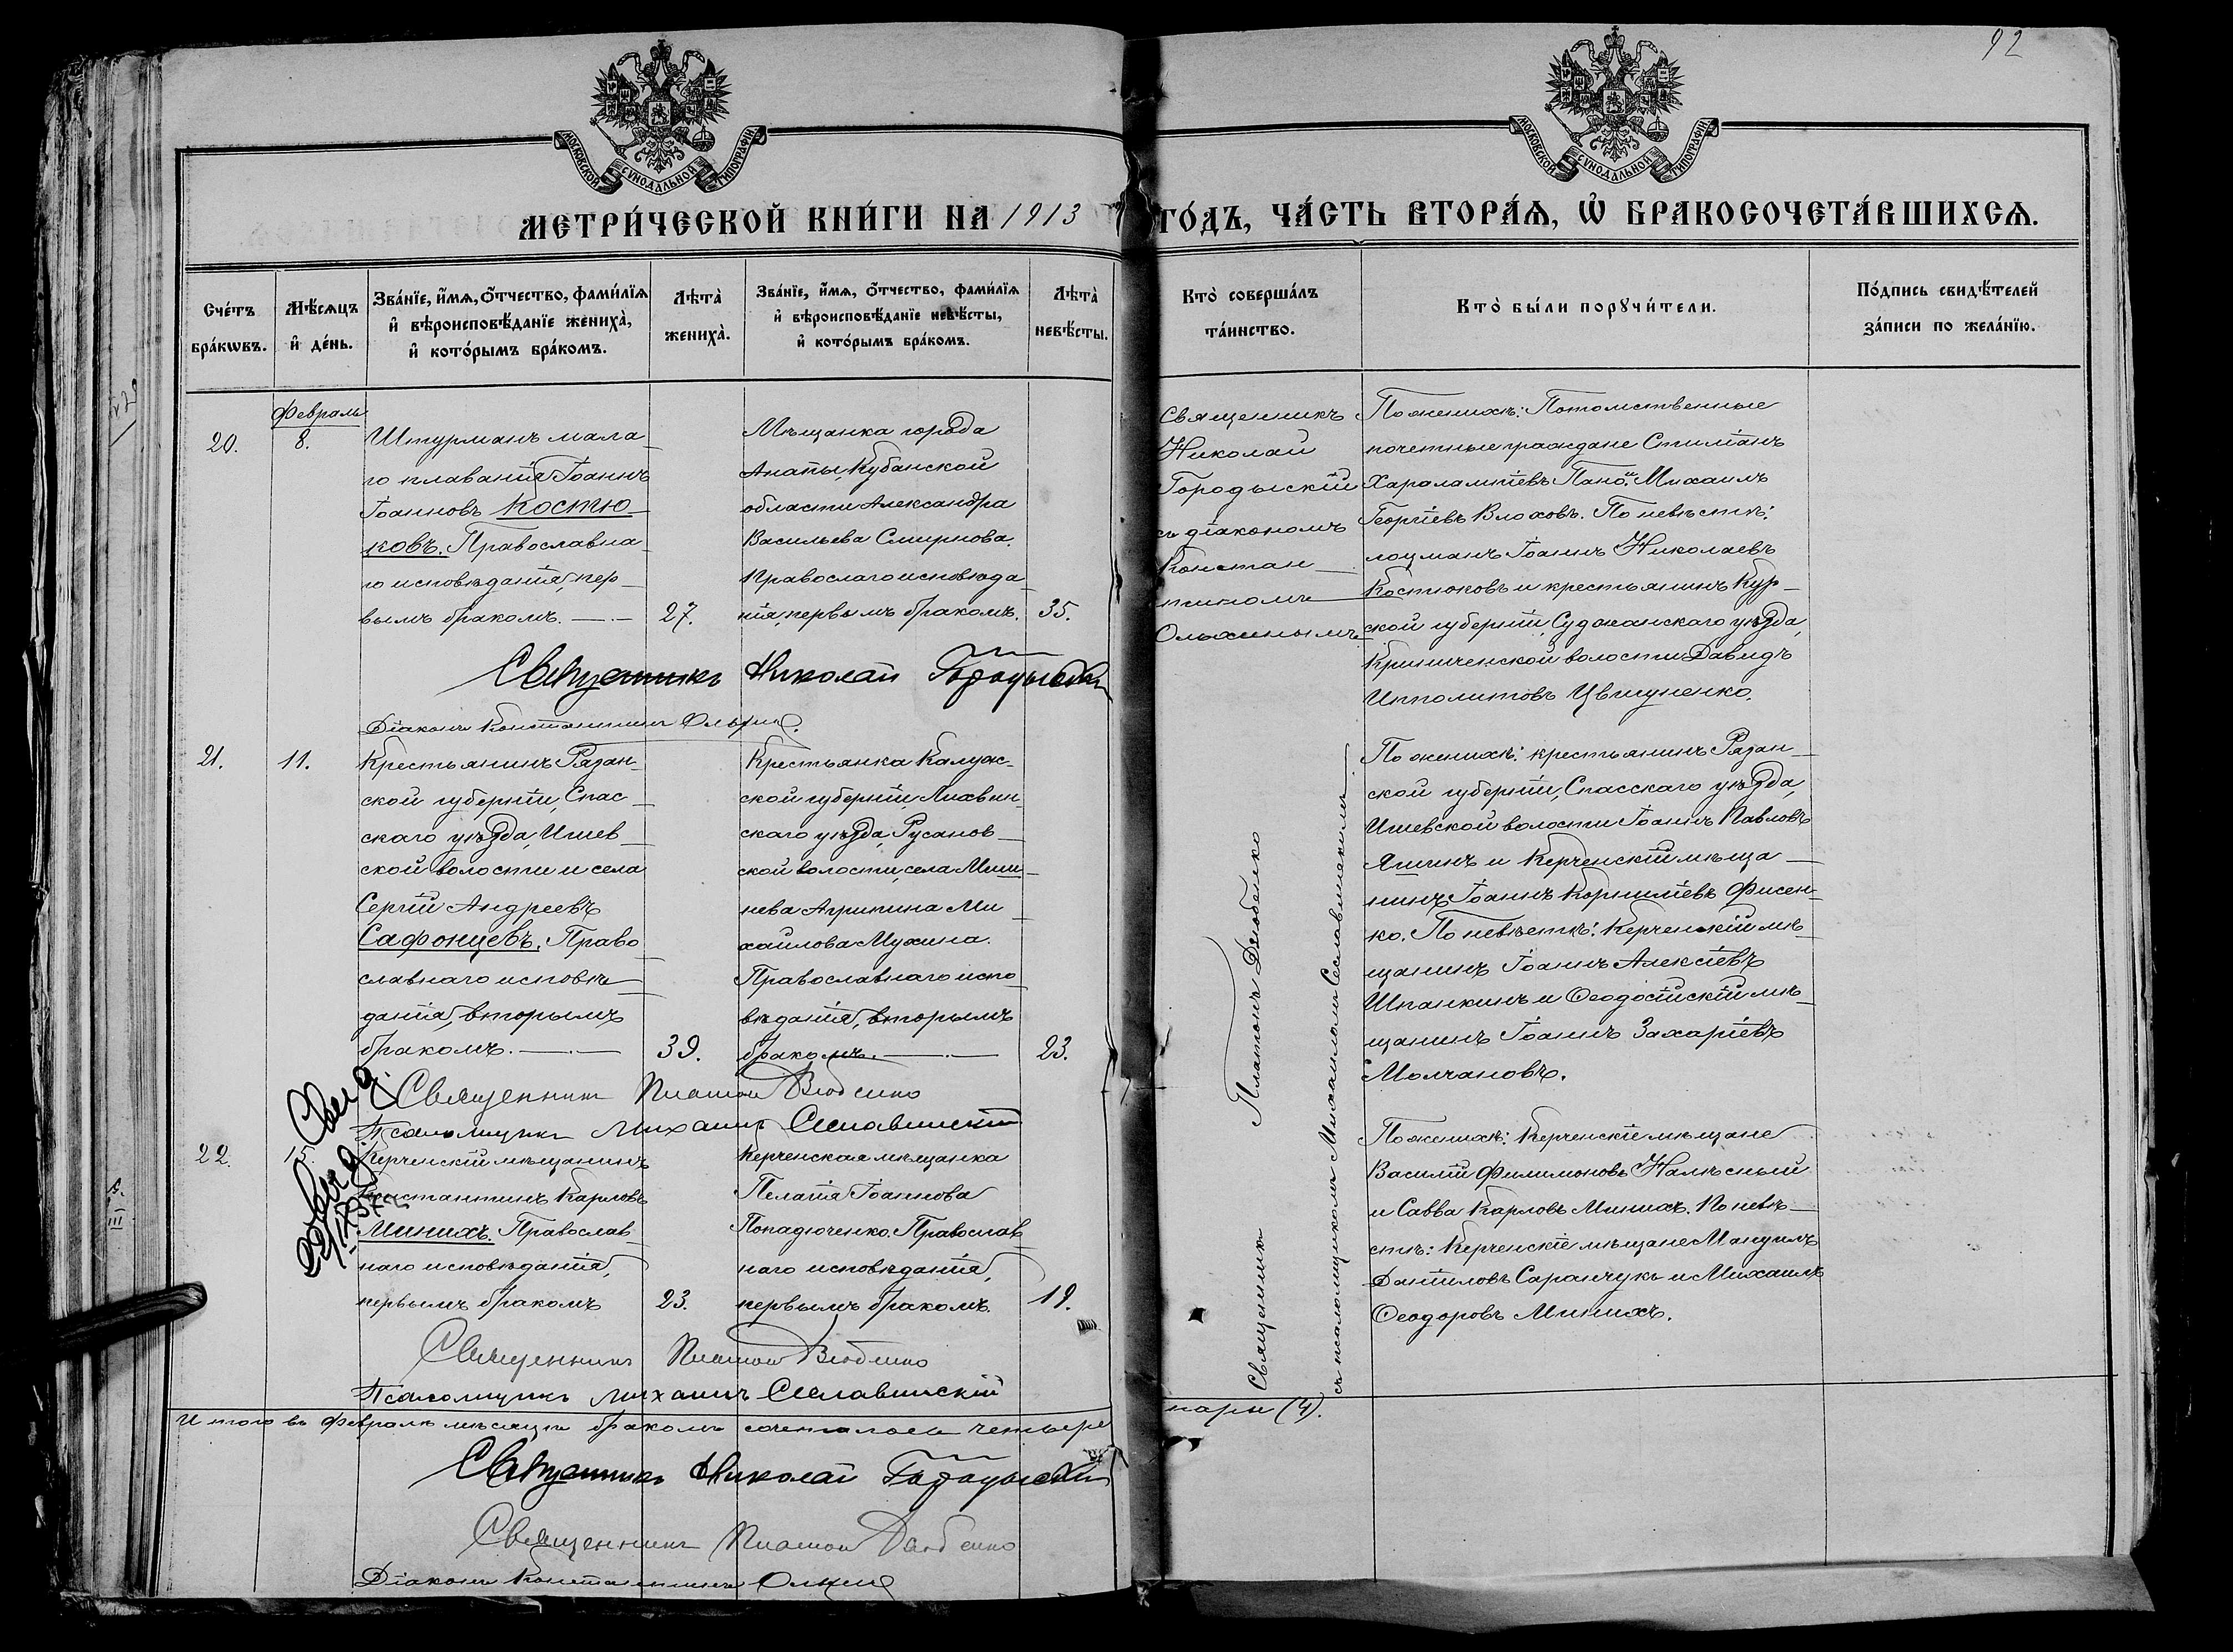 92
МОСКОВСКОЙ СУНОДАЛЬНОЙ ТИПОГРАФІИ
МОСКОВСКОЙ СУНОДАЛЬНОЙ ТИПОГРАФІИ
МЕТРИ́ЧЕСКОЙ КНИ́ГИ НА 1913 ГО́ДЪ, ЧА́СТЬ ВТОРА́Ѧ, Ѽ БРАКОСОЧЕТА́ВШИХСѦ.
Сче́тъ бра́кѡвъ.
Мѣ́сѧцъ и҆ де́нь.
Зва́нїе, и҆́мѧ, ѻ҆́тчество, фами́лїѧ
и҆ вѣроисповѣ́данїе жениха̀,
и҆ кото́рымъ бра́комъ.
Лѣта̀ жениха̀.
Зва́нїе, и҆́мѧ, ѻ҆́тчество, фами́лїѧ
и҆ вѣроисповѣ́данїе невѣ́сты,
и҆ кото́рымъ бра́комъ.
Лѣта̀ невѣ́сты.
Кто̀ соверша́лъ
та́инство.
Кто̀ бы́ли порꙋчи́тели.
По́дпись свидѣ́телей
за́писи по жела́нїю.
20.
Февраль
8.
Штурманъ мала-
го плаванія Іоаннъ
Іоанновъ Костю-
ковъ. Православна-
го исповѣданія, пер-
вымъ бракомъ.
27.
Мѣщанка города
Анапы, Кубанской
области Александра
Васильева Смирнова.
Православаго исповѣда-
нія, первымъ бракомъ.
35.
Священникъ
Николай
Городыскій
съ діакономъ
Констан-
тиномъ
Ольхинымъ
По женихѣ: Потомственные
почетные граждане Стиліанъ
Харалампіевъ Пано и Михаилъ
Георгіевъ Влаховъ. По невѣстѣ:
лоцманъ Іоаннъ Николаевъ
Костюковъ и крестьянинъ Кур-
ской губерніи, Суджанскаго уѣзда,
Криниченской волости Давидъ
Ипполитовъ Цвигуненко.
Священникъ Николай Городыскій
Діаконъ Константинъ Ольхинъ.
21.
11.
Крестьянинъ Рязан-
ской губерніи, Спас-
скаго уѣзда, Ижев-
ской волости и села
Сергій Андреевъ
Сафонцевъ. Право-
славнаго исповѣ-
данія, вторымъ
бракомъ.
39.
Крестьянка Калуж-
ской губерніи Лихвин-
скаго уѣзда, Русанов-
ской волости, села Миш-
нева Агрипина Ми-
хаилова Мухина.
Православнаго испо-
вѣданія, вторымъ
бракомъ.
23.
Священникъ Платонъ Дзюбенко
съ псаломщикомъ Михаиломъ Сеславинскимъ
По женихѣ: крестьянинъ Рязан-
ской губерніи, Спасскаго уѣзда,
Ижевской волости Іоаннъ Павловъ
Яшинъ и Керченскій мѣща-
нинъ Іоаннъ Корниліевъ Фисен-
ко. По невѣстѣ: Керченскій мѣ-
щанинъ Іоаннъ Алексіевъ
Шпанкинъ и Ѳеодосійскій мѣ-
щанинъ Іоаннъ Захаріевъ
Молчановъ.
Священникъ Платонъ Дзюбенко
Псаломщикъ Михаилъ Сеславинскій
22.
15.
Керченскій мѣщанинъ
Константинъ Карловъ
Минихъ. Православ-
наго исповѣданія,
первымъ бракомъ
23.
Керченская мѣщанка
Пелагія Іоаннова
Попадюченко. Православ-
наго исповѣданія,
первымъ бракомъ.
19.
По женихѣ: Керченскіе мѣщане
Василій Филимоновъ Налѣсный
и Савва Карловъ Минихъ. По невѣ-
стѣ: Керченскіе мѣщане Мануилъ
Даніиловъ Саранчукъ и Михаилъ
Ѳеодоровъ Минихъ.
Священникъ Платонъ Дзюбенко
Псаломщикъ Михаилъ Сеславинскій
Итого въ Февралѣ мѣсяцѣ бракомъ сочеталось четыре пары (4).
Священникъ Николай Городыскій
Священникъ Платонъ Дзюбенко
Діаконъ Константинъ Ольхинъ